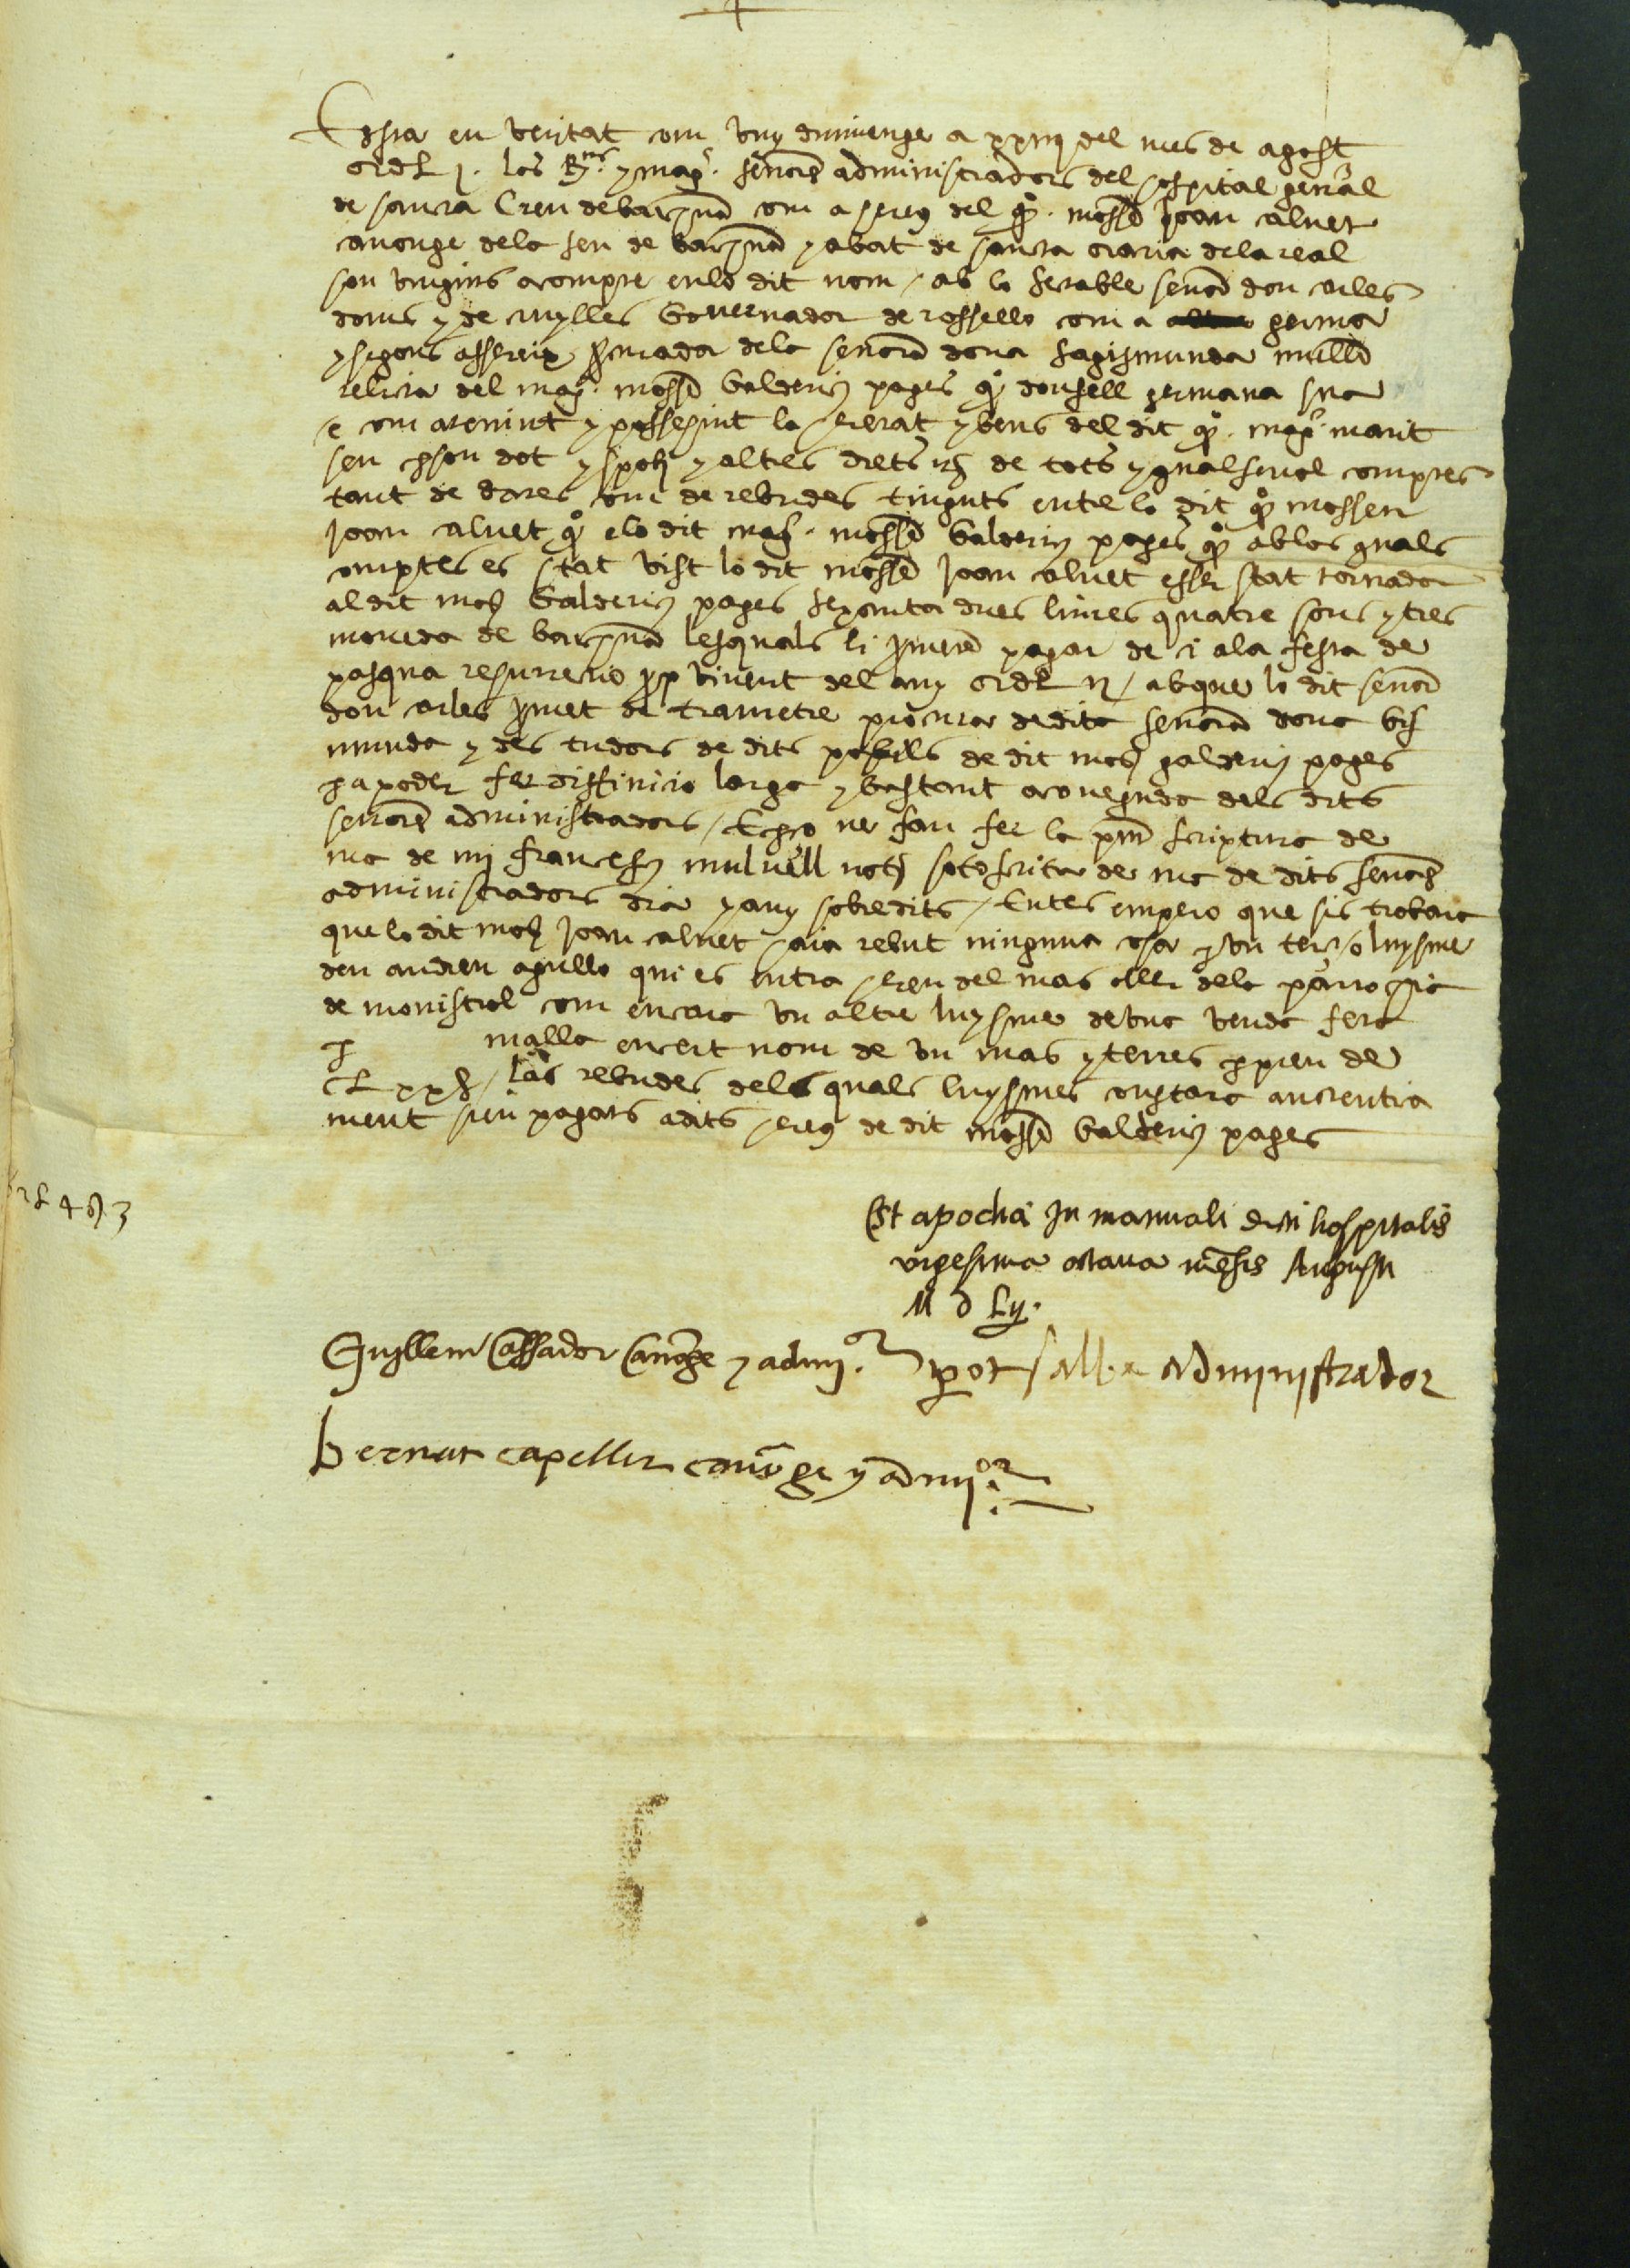 Essia en veritat com vuy diumenge a xxiii del mes de agost
MDL j. los R.ns y mag. senors administradors del spital general
de sancta Creu de barna com a hereu del qo. mossen Joan aluet
canonge dela seu de barna y abat de sancta maria dela real
son vinguts a compte en lo dit nom / ab lo spectable senor don carles
doms y de cruylles Governador de rossello com a germa
y segons assereix procurador dela senora dona sagismunda muller
relicta del mag. mossen Galderiq pages qo donsell germana sua
e com a tenint y possehint la heretat y bens del dit qo. mag. marit
seu per son dot y spoli y altres drets de tots y qualseuol comptes
tant de dates com de rebudes tinguts entre lo dit qo mossen
Joan aluet qo e lo dit mag. mossen Galderiq pages qo ab los quals
comptes es stat vist lo dit mossen Joan aluet esser stat tornador
al dit mos Galderiq pages sexanta dues liures quatre sous y tres
moneda de barna les quals li prometen pagar de ci ala festa de
pasqua resurrectio prop vinent del any MDL ij / ab que lo dit senor
don carles promet de trametre procura de dita senora dona Gis
munda y des tudors de dits pobils de dit mos galderiq pages
per a poder fer diffinicio larga y bastant a coneguda dels dits
senors administradors / E per ço ne fan fer la pnt scriptura de
ma de mi francesch muluell not sotascrita de ma de dits senors
administradors dia y any sobredits / Entes empero que sis trobara
que lo dit mos Joan aluet haia rebut ninguna cosa per vn terç o luysme
den andreu agullo qui es intra hereu del mas oller dela parroquia
de monistrol com encara vn altre luysme de vna venda feta
per malla en cert nom de vn mas y terres per preu de
CLxx / las rebudes dels quals luysmes constara autentica
ment sien pagats a dits hereus de dit mossen Galderiq pages
Est apocha in manuali dicti hospitalis
vigesima octaua mensis Augusti
M D Lij.
Guillem Cassador Canonge y admi.or pot salba administrador
bernat capeller canonge y admi.or